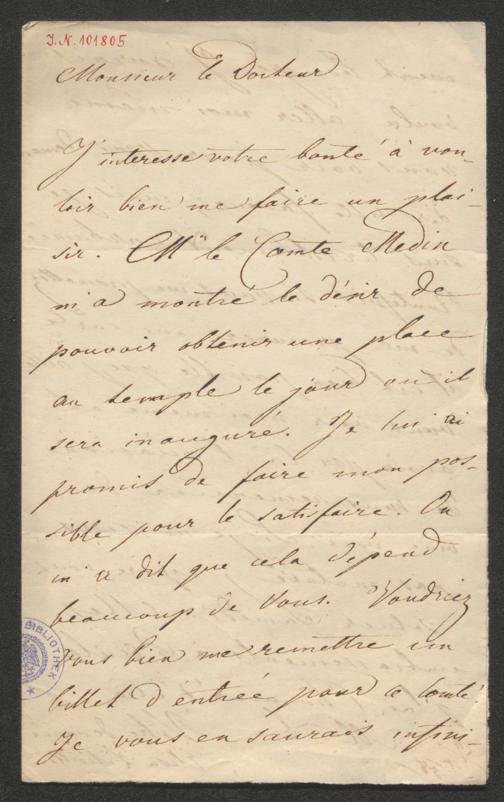 J.N. 101805
Monsieur le Docteur
J'interesse votre bonté à vou-
loir bien me faire un plai-
sir. Mr le Comte Medin
m'a montré le désir de
pouvoir obtenir une place
au temple le jour où il
sera inauguré. Je lui ai
promis de faire mon pos-
sible pour le satisfaire. On
m'a dit que cela dépend
beaucoup de vous. Voudriez
vous bien me remettre un
billet d'entrée pour ce comte
Je vous en saurais infini-
BIBLIOTHEK